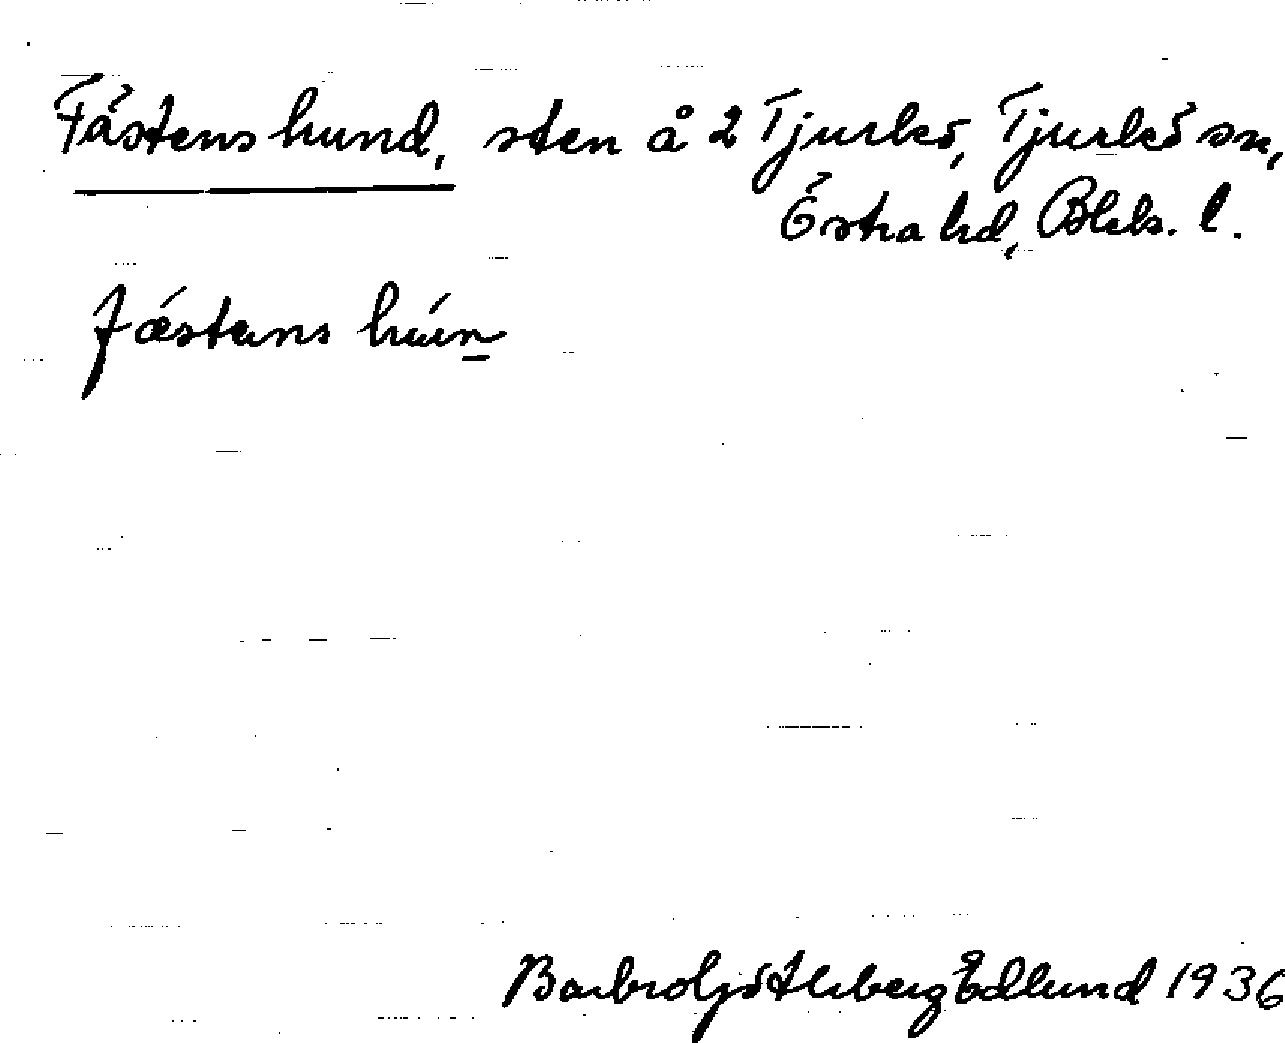 Fästens hund, sten å 2 Tjurkö, Tjurkö sn,
Östra hd, Blek. l.
fǽstens húin
Barbro Götherberg Edlund 1936